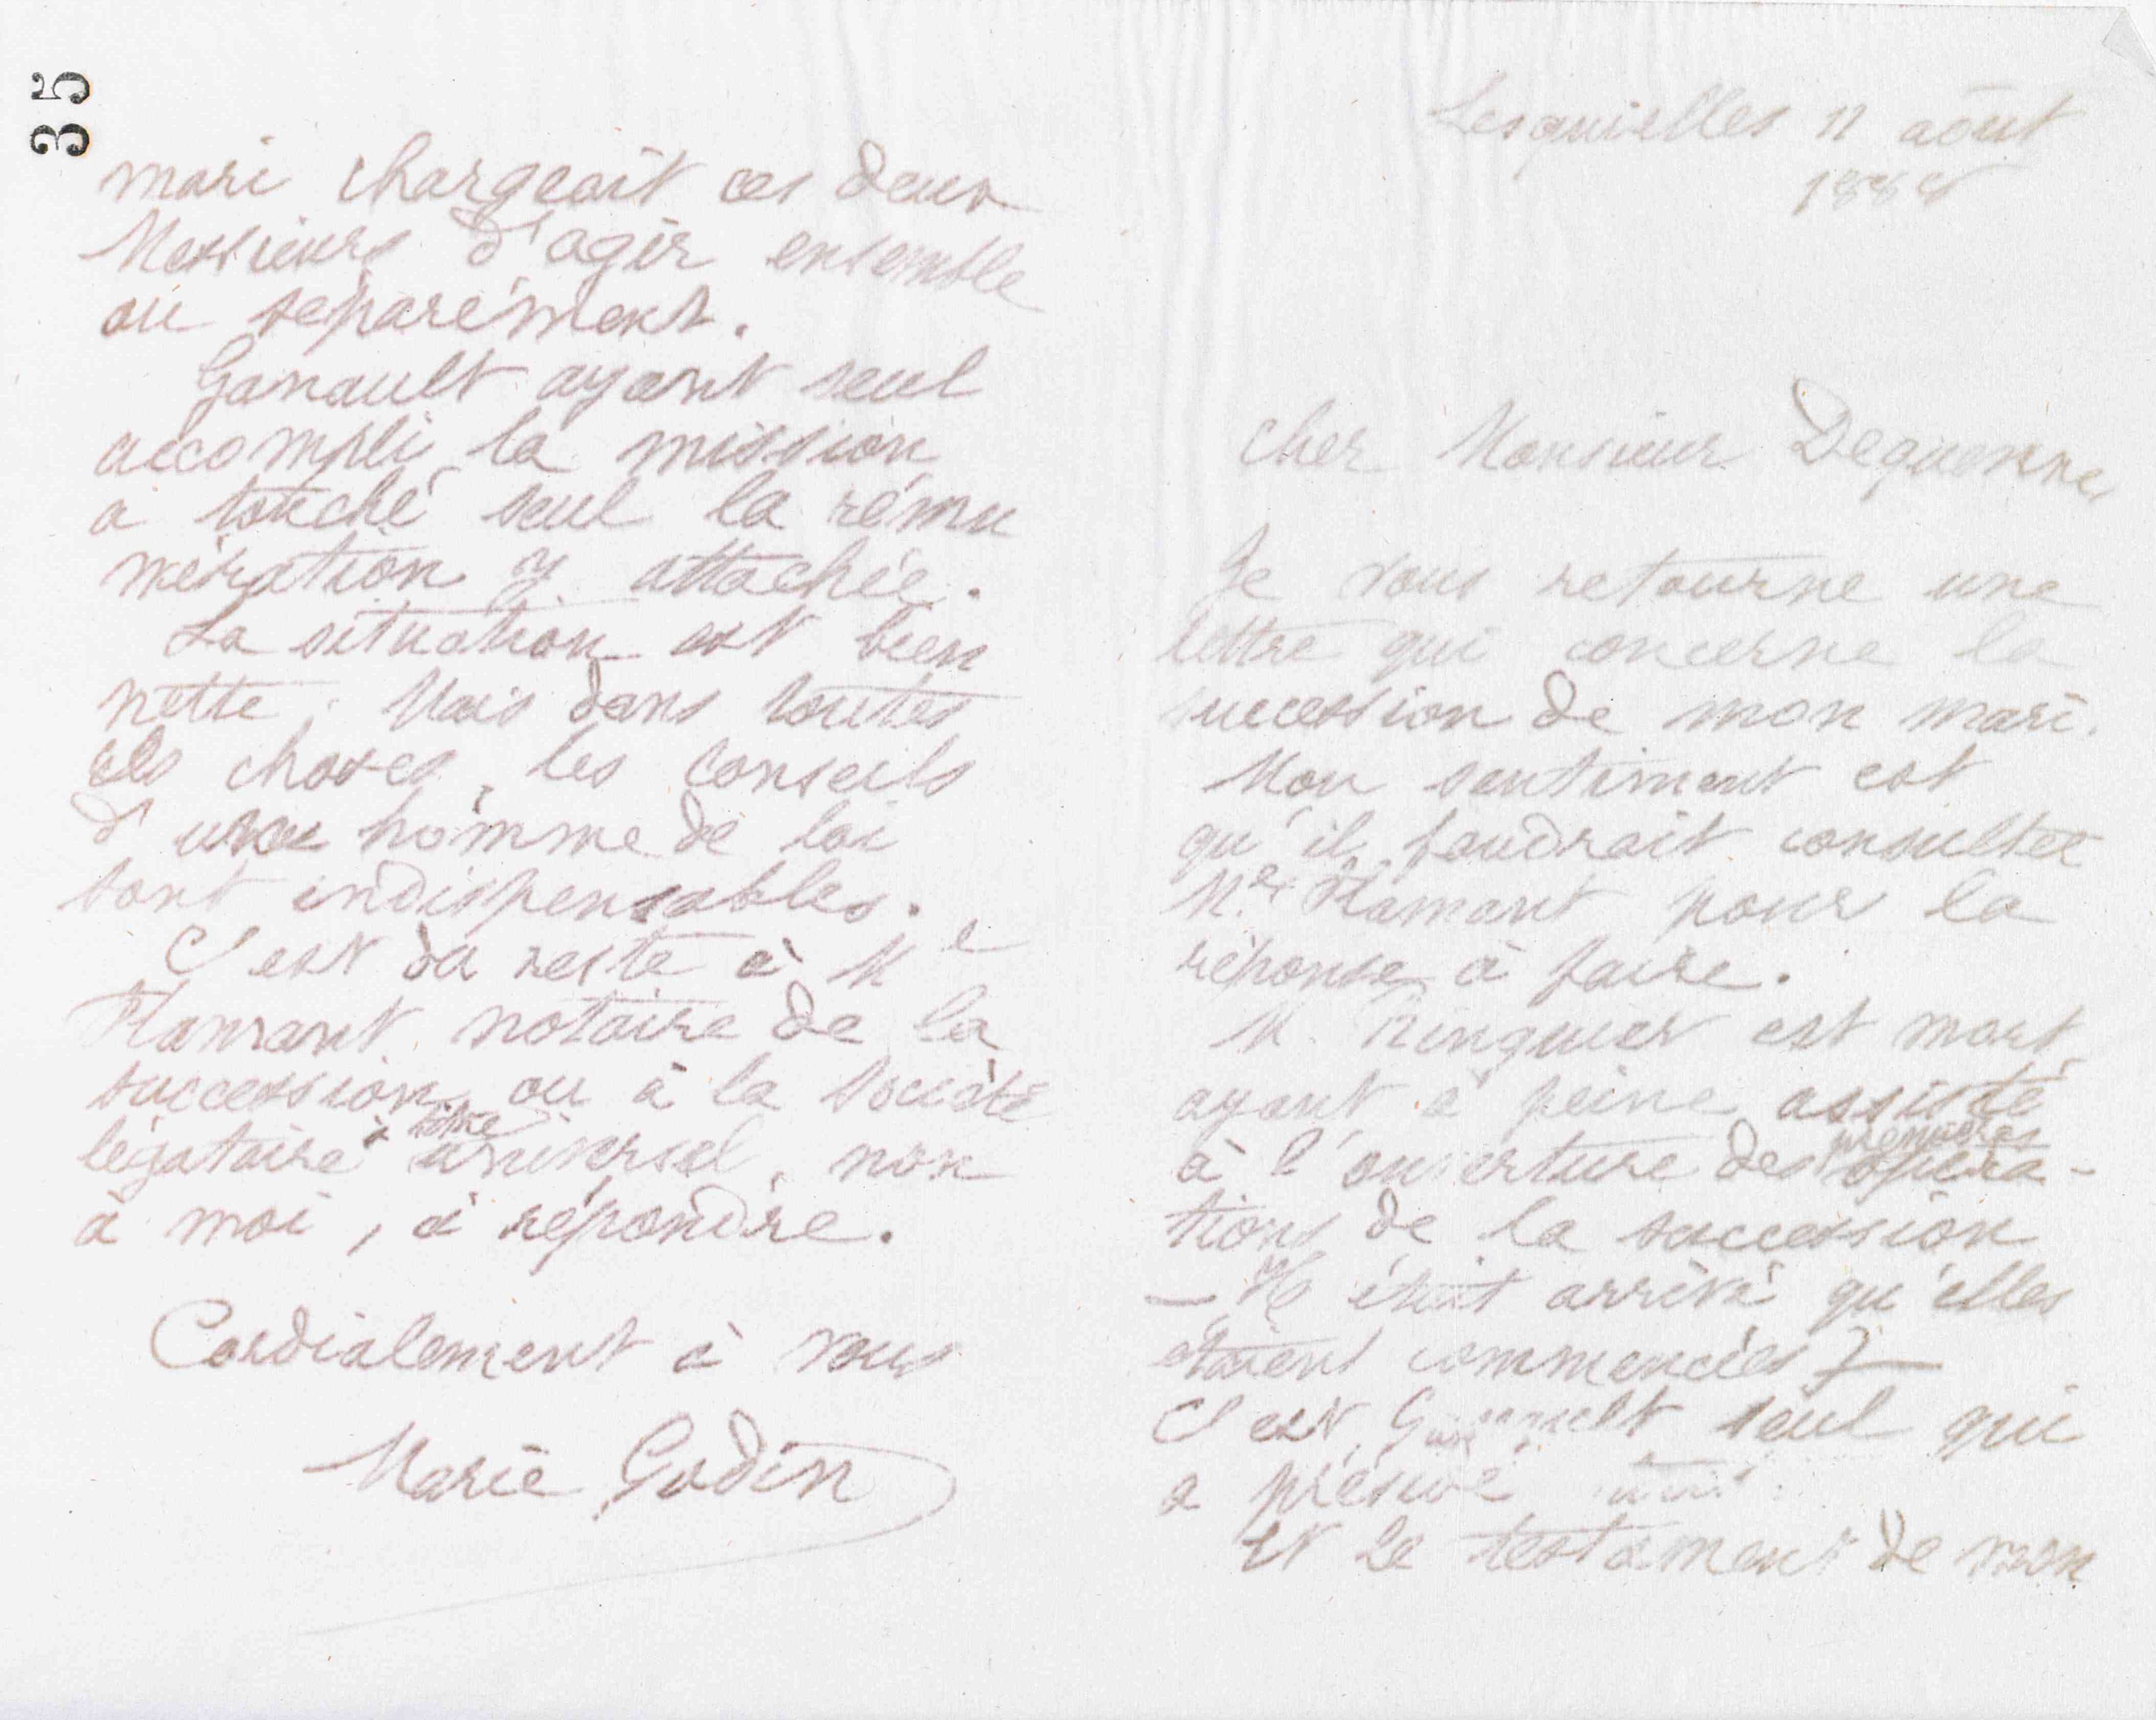 35
Lesquielles 11 août
Cher Monsieur Dequenne,
Je vous retourne une
lettre qui concerne la
succession de mon mari.
Mon sentiment est
qu'il faudrait consulter
Me Flamant pour la
réponse à faire.
M. Ringuier est mort
ayant à peine assisté
à l'ouverture des premières opéra-
tions de la succession
étaient commencées
C'est Ganault seul qui
a
Et le testament de mon
mari chargeait ces deux
Messieurs d'agir ensemble
ou séparément.
Ganault ayant seul
accompli la mission
a touché seul la rému
nération y attachée.
La situation est bien
nette. Mais dans toutes
ces choses, les conseils
d'un homme de loi
sont indispensables.
C'est du reste à Me
Flamant notaire de la
succession ou à la Société
légataire à titre universel, non
à moi, à répondre.
Cordialement à vous
Marie Godin